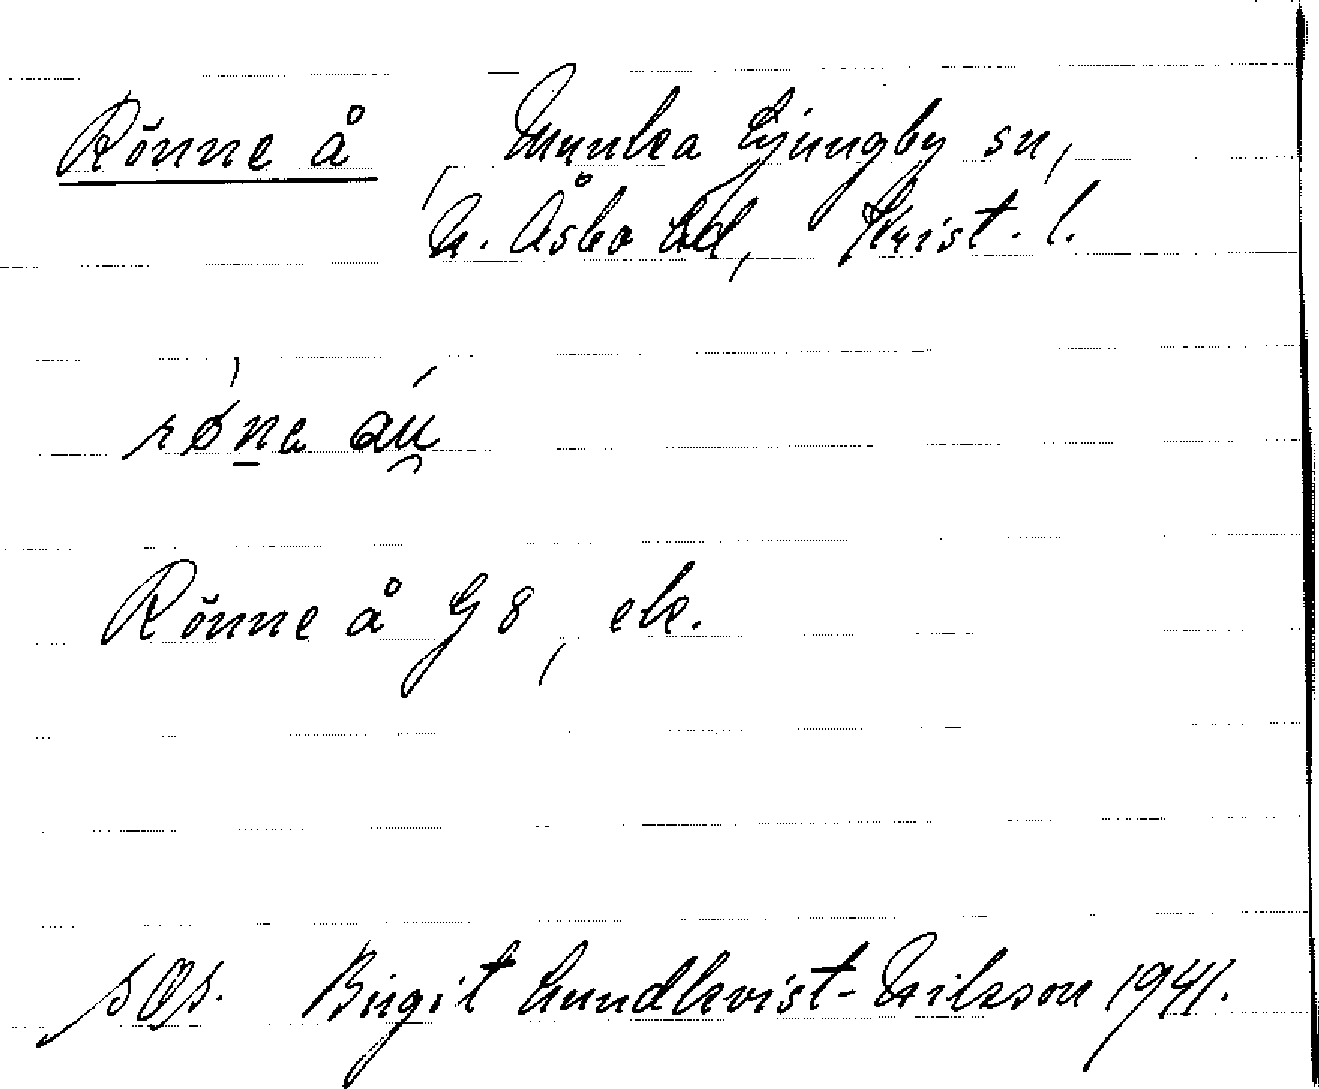 Rönne å, Munka Ljungby sn,
N. Åsbo hd, Krist. l.
røne au̯
Rönne å G8, ek.
Birgit Lundkvist-Nilsson 1941.